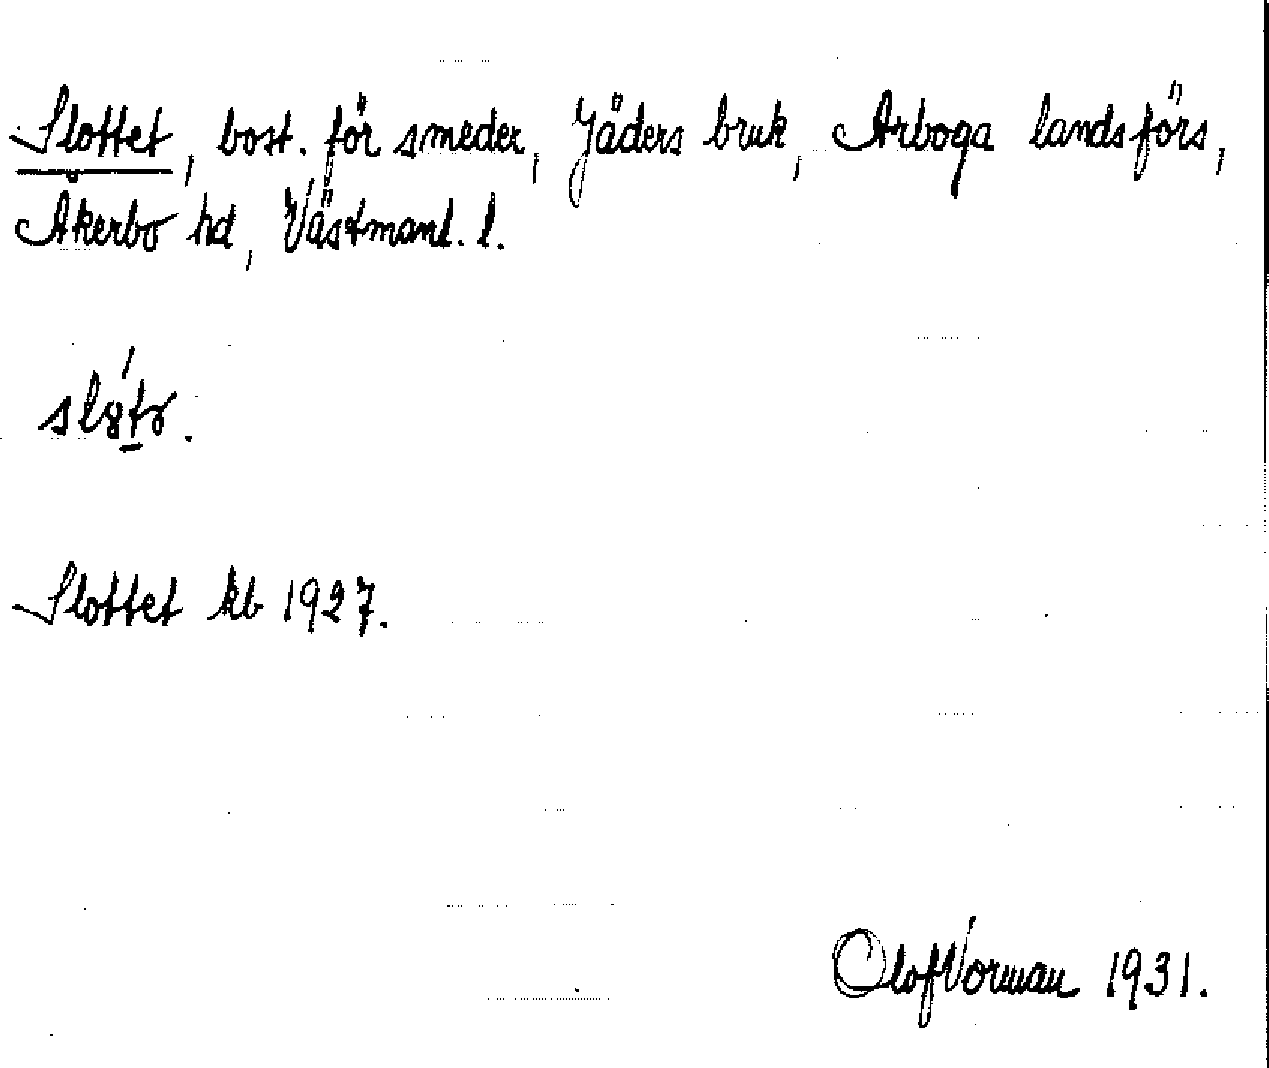 Slottet, bost. för smeder, Jäders bruk, Arboga landsförs,
Åkerbo hd, Västmanl. l.
Slottet kb 1927.
Olof Vorman 1931.